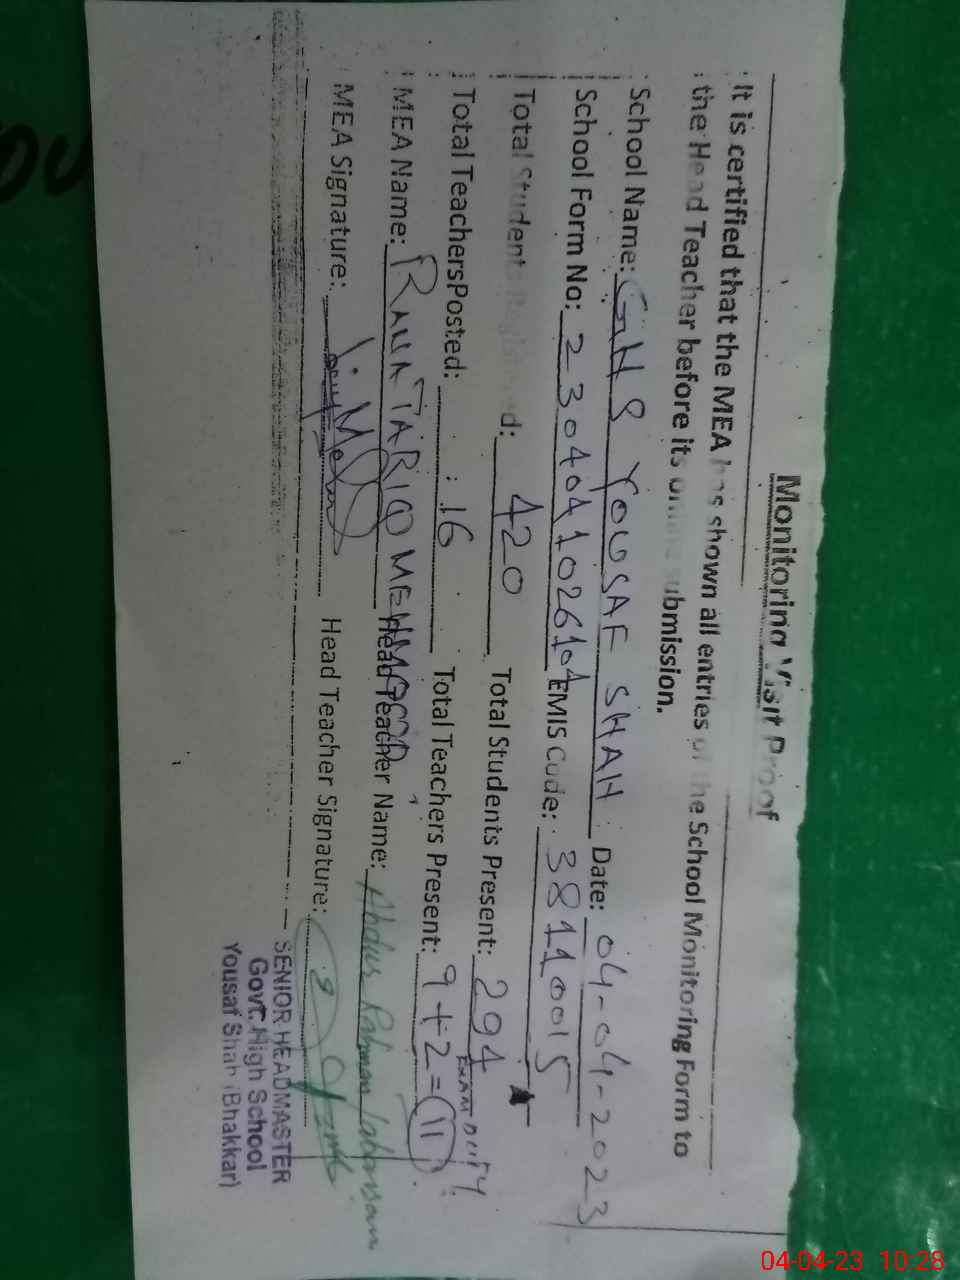 Monitoring Visit Proof
It is certified that the MEA has shown all entries of the School Monitoring Form to
the Head Teacher before its online submission.
School Name: GHS YOUSAF SHAH Date: 04-04-2023
School Form No: 230404102610 EMIS Code: 38110015
Total Student Registered: 420 Total Students Present: 294
EXAM DUTY
Total Teachers Posted: 16 Total Teachers Present: 9+2=11
MEA Name: RANA TARIQ MEHMOOD Head Teacher Name: Abdur Rahman
MEA Signature: Head Teacher Signature:
SENIOR HEADMASTER
Govt. High School
Yousaf Shah (Bhakkar)
04-04-23 10:28